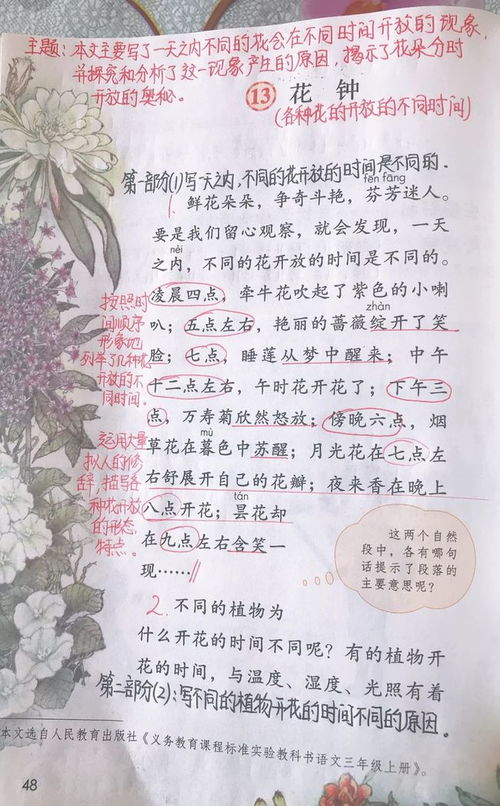 主题：本文主要写了一天之内不同的花会在不同时间开放的现象，
并探究和分析了这一现象产生的原因，揭示了花朵分时
开放的奥秘。
13 花钟
(各种花的开放的不同时间)
第一部分(1)写一天之内，不同的花开放的时间是不同的.
fēn fāng
1. 鲜花朵朵，争奇斗艳，芬芳迷人。
要是我们留心观察，就会发现，一天
nèi
之内，不同的花开放的时间是不同的。
凌晨四点，牵牛花吹起了紫色的小喇
zhàn
叭；五点左右，艳丽的蔷薇绽开了笑
脸；七点，睡莲从梦中醒来；中午
十二点左右，午时花开花了；下午三
点，万寿菊欣然怒放；傍晚六点，烟
mù
草花在暮色中苏醒；月光花在七点左
右舒展开自己的花瓣；夜来香在晚上
tán
八点开花；昙花却
在九点左右含笑一
现……
按照时
间顺序
形象地
列举了几种花
开放的不
同时间。
运用大量
拟人的修
辞，描写各
种花开放
的形态
特点。
这两个自然
段中，各有哪句
话提示了段落的
主要意思呢？
2. 不同的植物为
什么开花的时间不同呢？有的植物开
花的时间，与温度、湿度、光照有着
第二部分(2)：写不同的植物开花的时间不同的原因。
本文选自人民教育出版社《义务教育课程标准实验教科书语文三年级上册》。
48